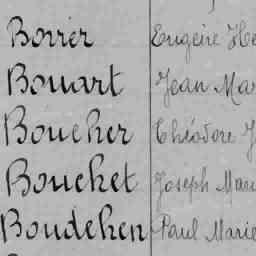 Borrer Eugène He
Bouart Jean Mar
Boucher Théodore J
Bouchet Joseph Mari
Boudehen Paul Marie